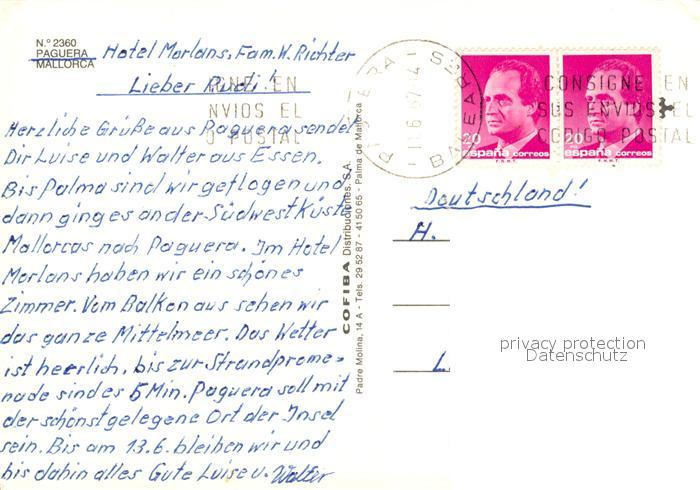 N.º 2360
PAGUERA
MALLORCA
Hotel Morlans, Fam. W. Richter
Lieber Rudi!
Herzliche Grüße aus Paguera sendet
Dir Luise und Walter aus Essen.
Bis Palma sind wir geflogen und
dann ging es an der Südwest Küste
Mallorcas nach Paguera. Im Hotel
Morlans haben wir ein schönes
Zimmer. Vom Balkon aus sehen wir
das ganze Mittelmeer. Das Wetter
ist herrlich, bis zur Strandprome=
nade sind es 5 Min. Paguera soll mit
der schönst gelegene Ort der Insel
sein. Bis am 13.6. bleiben wir und
bis dahin alles Gute Luise u. Walter
COFIBA Distribuciones, S.A.
Padre Molina, 14 A - Tels. 29 52 87 - 41 50 65 - Palma de Mallorca
IGNE EN
NVIOS EL
O POSTAL
PAGUERA - BALEARES
CONSIGNE EN
SUS ENVIOS EL
CODIGO POSTAL
20
españa correos
F.N.M.T.
20
españa correos
F.N.M.T.
Deutschland!
H.
L
privacy protection
Datenschutz